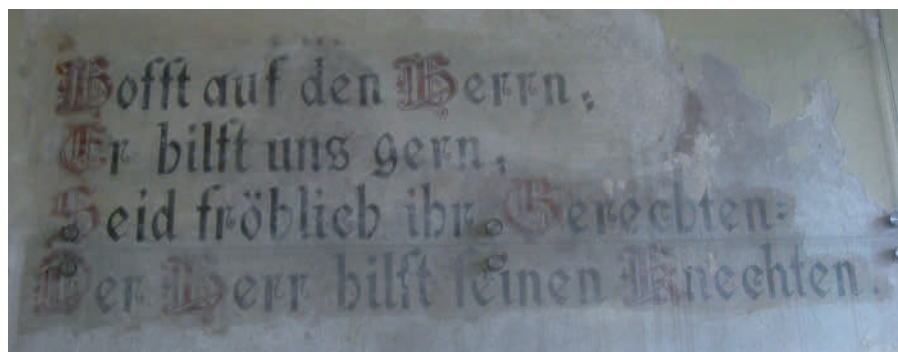 Hofft auf den Herrn;
Er hilft uns gern,
Seid fröhlich ihr Gerechten:
Der Herr hilft seinen Knechten.